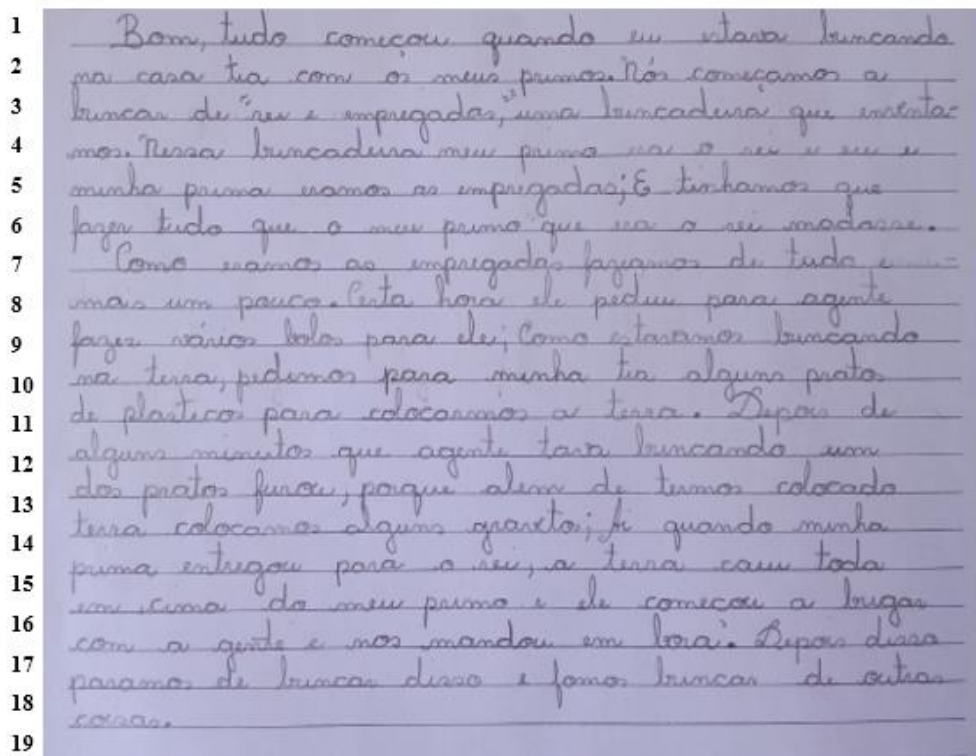 1 Bom, tudo começou quando eu estava brincando
2 na casa tia com os meus primos. Nós começamos a
3 brincar de "rei e empregadas," uma brincadeira que inventa-
4 mos. Nessa brincadeira meu primo era o rei e eu e
5 minha prima eramos as empregadas; E tinhamos que
6 fazer tudo que o meu primo que era o rei madasse.
7 Como eramos as empregadas fazíamos de tudo e
8 mais um pouco. Certa hora ele pediu para agente
9 fazer vários bolos para ele; Como estavamos brincando
10 na terra, pedimos para minha tia alguns pratos
11 de plasticos para colocarmos a terra. Depois de
12 alguns minutos que agente tava brincando um
13 dos pratos furou, porque alem de termos colocado
14 terra colocamos alguns graveto; Ai quando minha
15 prima entregou para o rei, a terra caiu toda
16 em cima do meu primo e ele começou a brigar
17 com a gente e nos mandou em bora. Depois disso
18 paramos de brincar disso e fomos brincar de outras
19 coisas.